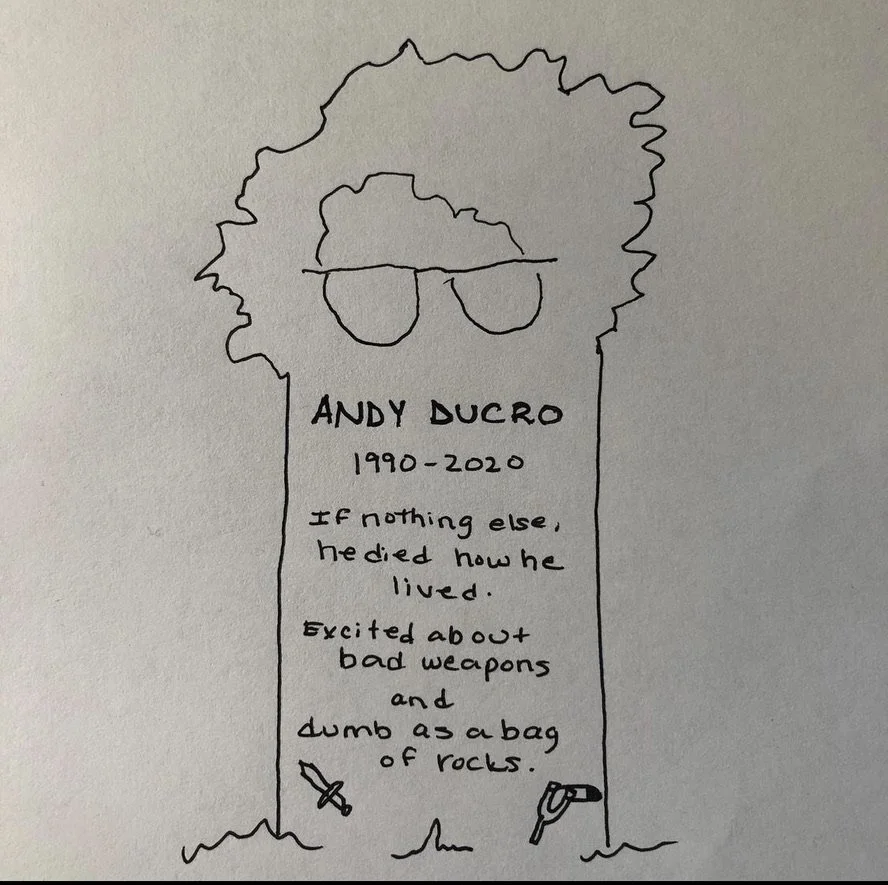 ANDY DUCRO
1990-2020
If nothing else,
he died how he
lived.
Excited about
bad weapons
and
dumb as a bag
of rocks.